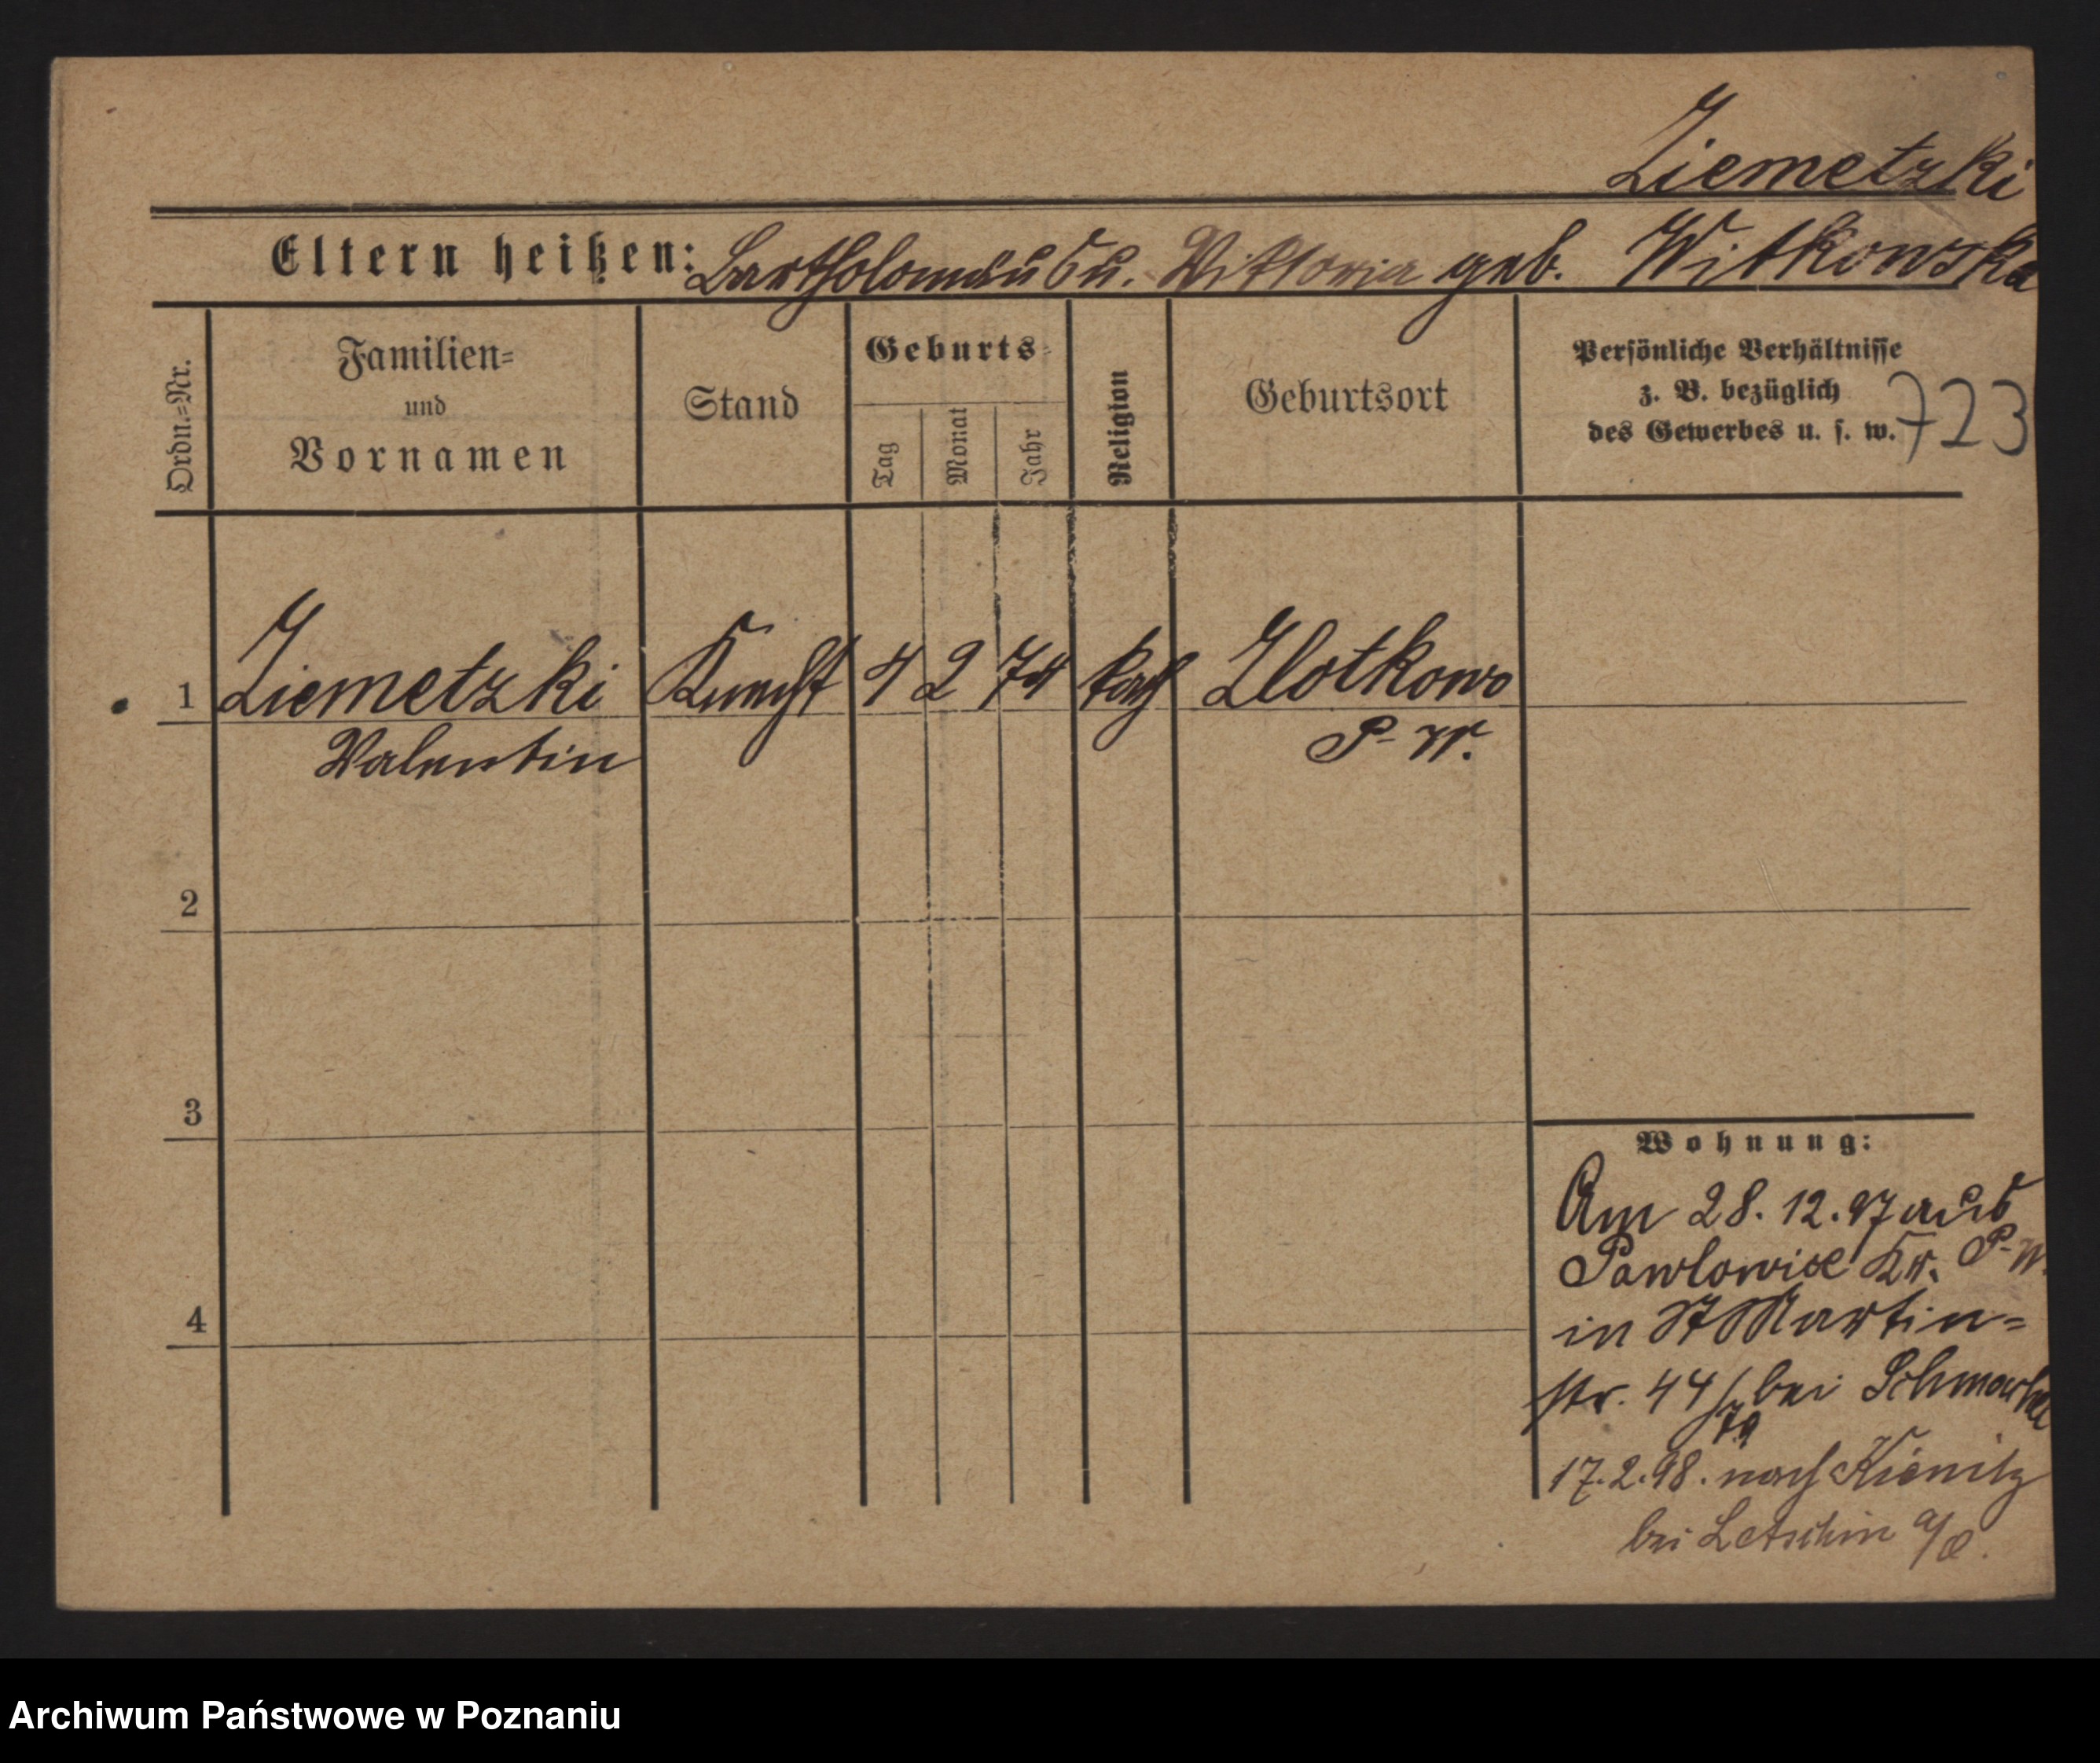 Ziemetzki
Eltern heißen: Bartholomäus u. Viktoria geb. Witkowska
Ordn.=Nr.
Familien=
und
Vornamen
Stand
Geburts=
Tag
Monat
Jahr
Religion
Geburtsort
Persönliche Verhältnisse
z. B. bezüglich
des Gewerbes u. s. w.
723
1 Ziemetzki Knecht 4 2 74 kath Zlotkowo
Valentin P-W.
2
3
4
Wohnung:
Am 28. 12. 97 aus
Pawlowice Kr. P-W.
in St Martin=
str. 44 bei
17. 2. 98. nach Kienitz
bei Letschin a/O.
Archiwum Państwowe w Poznaniu